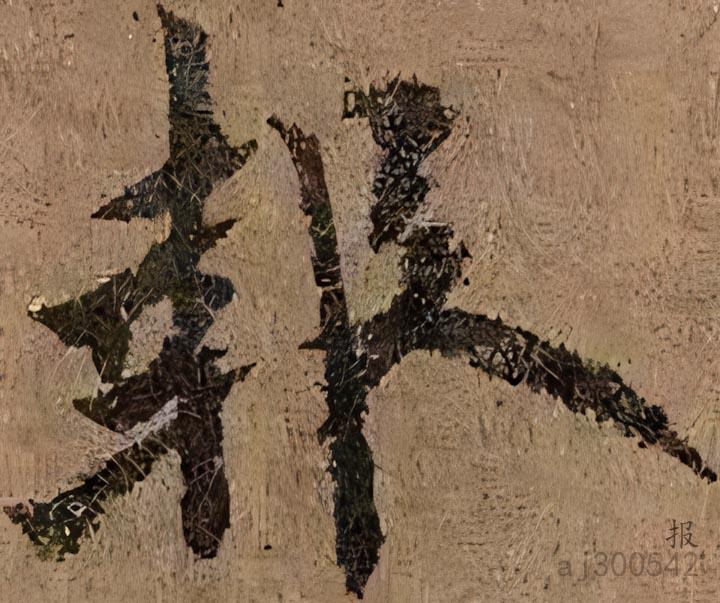 報
报
aj300542